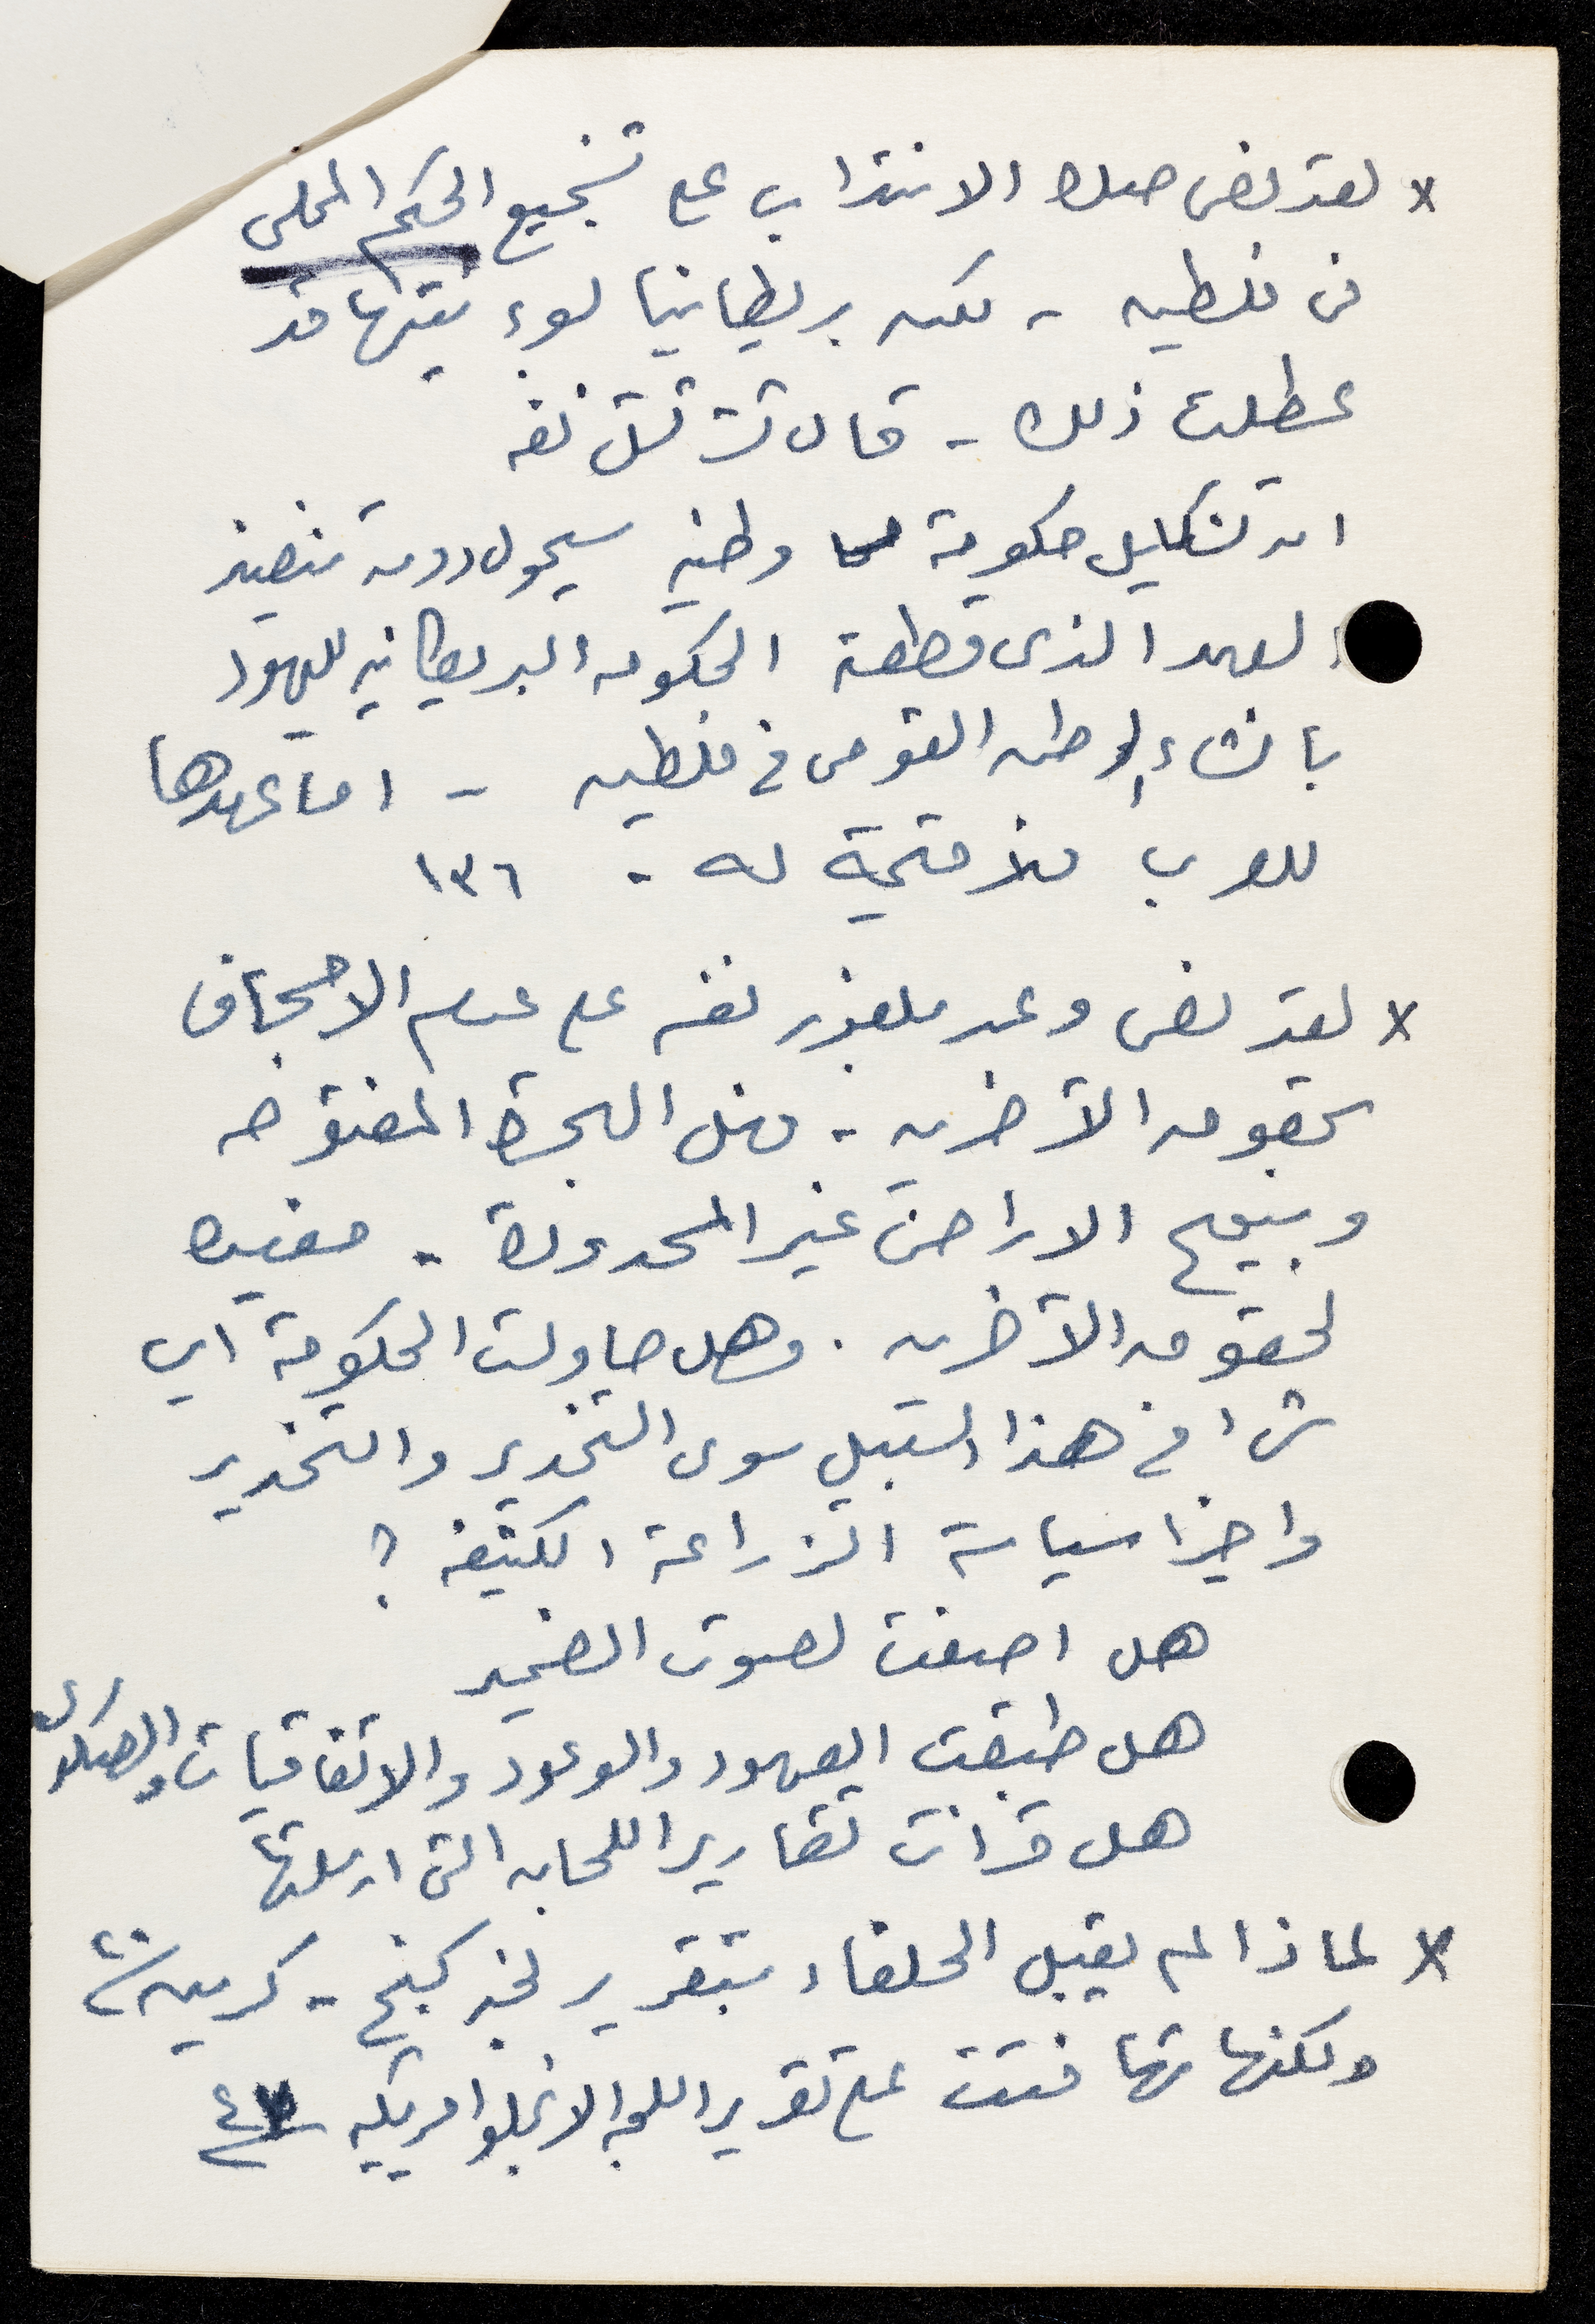 x لقد نص صك الانتداب على تشجيع الحكم المحلى
فى فلسطين - لكن بريطانيا لسوء نيتها قد
عطلت ذلك - قال تشرتشل نفسه
ان تشكيل حكومة وطنيه سيحول دون تنفيذ
العهد الذى قطعته الحكومه البريطانيه لليهود
بانشاء الوطن القومى فى فلسطين - اما عهدها
للعرب فلا قيمة له - ١٣٦
x لقد نص وعد بلفور نفسه على عدم الاجحاف
بحقوق الآخرين - فهل الهجرة المفتوحه
وبيع الاراضى غير المحدودة - مفيده
لحقوق الآخرين . وهل حاولت الحكومة اى
شىء فى هذا السبيل سوى التخدير والتخدير
واخيرا سياسة الزراعة الكثيفه ؟
هل اصغت لصوت الضمير
هل طبقت العهود والوعود والاتفاقيات والصكوك
هل قرأت تقارير اللجان التى ارسلتها
x لماذا لم يقبل الحلفاء بتقرير لجنة كينج - كرين ٢٠
ولكنها تهافتت على تقرير اللجنه الانجلو امريكيه